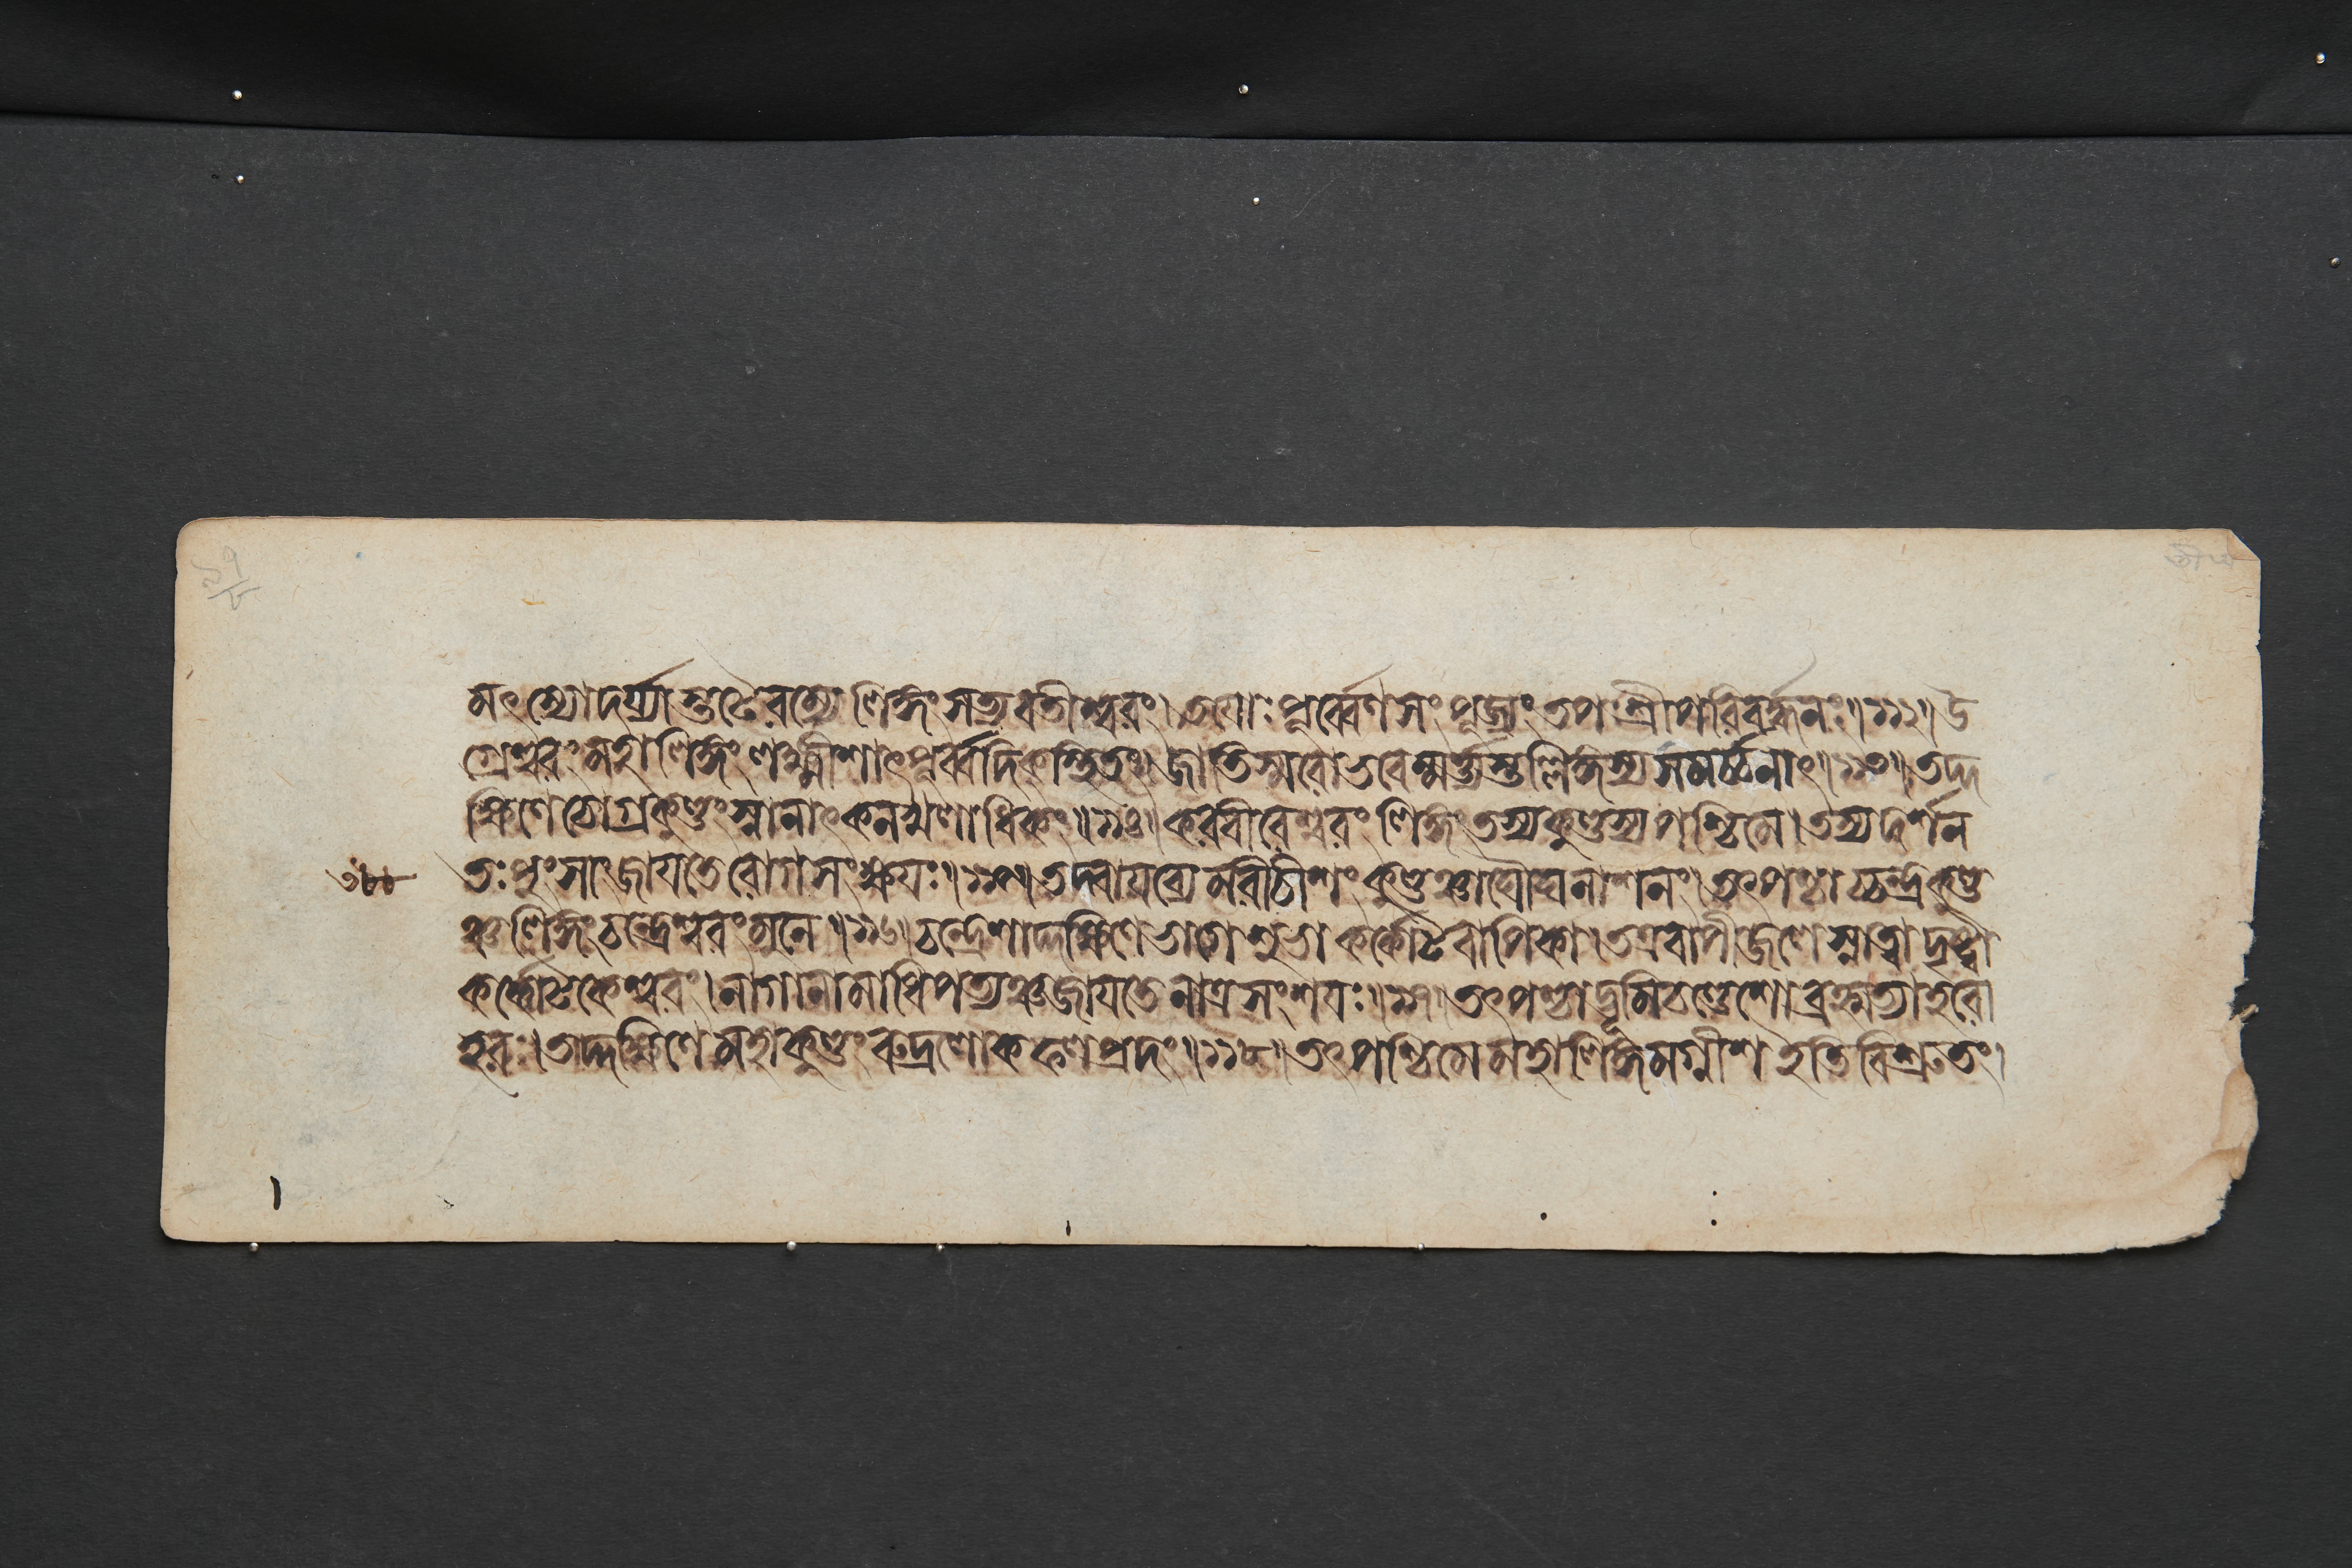 মৎস্যোদর্য্যাস্তটেরম্যে লিঙ্গং সত্যবতীশ্বরং। তয়োঃ পূর্ব্বেণ সংপূজ্যং তপশ্রীপরিবর্দ্ধনং॥১১২॥ উ
গ্রেশ্বরং মহালিঙ্গং লক্ষ্মীশাৎ পূর্ব্বদিক্স্থিতং। জাতিস্মরো ভবেন্মর্ত্ত্যস্তল্লিঙ্গস্য সমর্চ্চনাৎ॥১১৩॥ তদ্দ
ক্ষিণে চোগ্রকুণ্ডং স্নানাৎ কনখলাধিকং॥১১৪॥ করবীরেশ্বরং লিঙ্গং তস্য কুণ্ডস্য পশ্চিমে। তস্য দর্শন
তঃ পুংসাং জায়তে রোগসংক্ষয়ঃ॥১১৫॥ তদ্বায়ব্যে মরীচীশং কুণ্ডঞ্চাঘৌঘনাশনং। তৎপশ্চাচ্চন্দ্রকুণ্ড
ঞ্চ লিঙ্গং চন্দ্রেশ্বরং মুনে॥১১৬॥ চন্দ্রেশাদ্দক্ষিণে ভাগে শুভা কর্কোটবাপিকা। তত্র বাপীজলে স্নাত্বা দৃষ্ট্বা
কর্কোটকেশ্বরং। নাগানামাধিপত্যঞ্চ জায়তে নাত্র সংশয়ঃ॥১১৭॥ তৎপশ্চাদ্দৃমিচণ্ডেশো ব্রহ্মহত্যাহরো
হরঃ। তদ্দক্ষিণে মহাকুণ্ডং রুদ্রলোকফলপ্রদং॥১১৮॥ তৎপশ্চিমে মহালিঙ্গমগ্নীশ ইতি বিশ্রুতং।